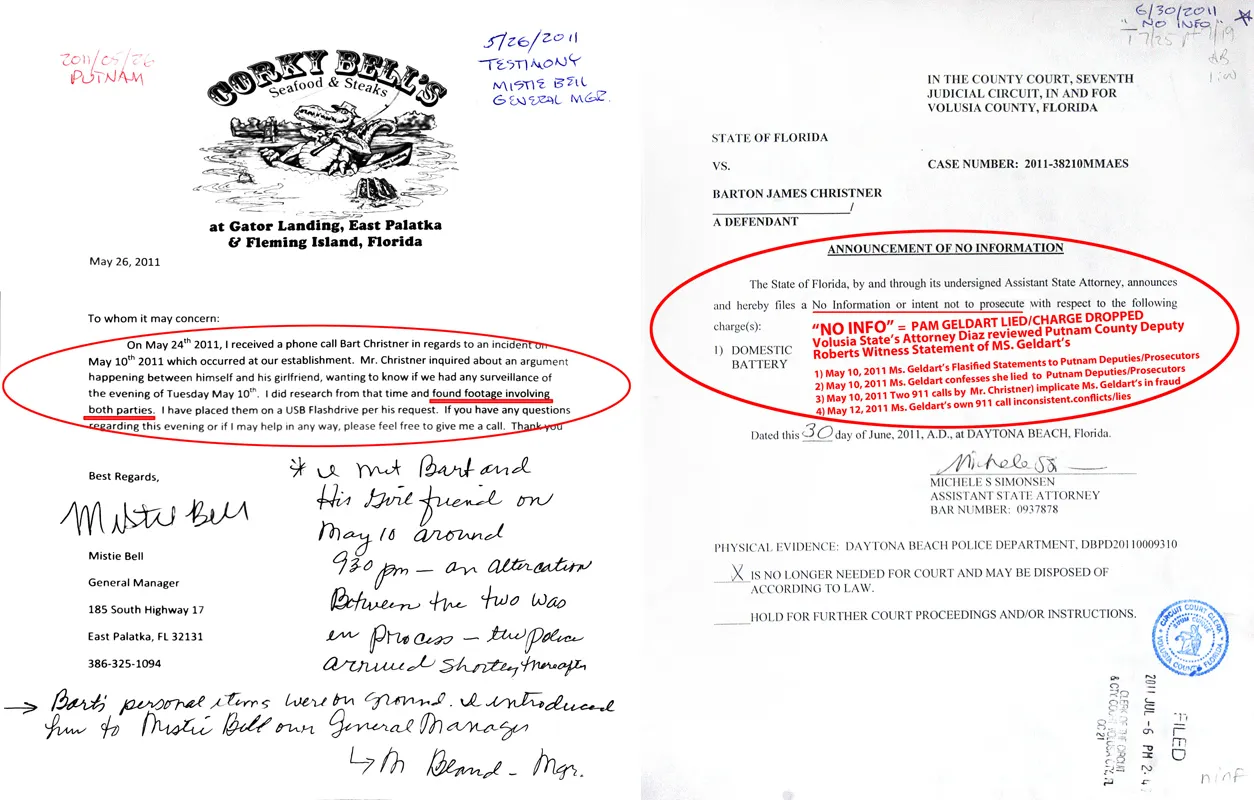 2011/05/26
PUTNAM
5/26/2011
TESTIMONY
MISTIE BELL
GENERAL MGR.
CORKY BELL'S
Seafood & Steaks
at Gator Landing, East Palatka
& Fleming Island, Florida
May 26, 2011
To whom it may concern:
On May 24th 2011, I received a phone call Bart Christner in regards to an incident on
May 10th 2011 which occurred at our establishment. Mr. Christner inquired about an argument
happening between himself and his girlfriend, wanting to know if we had any surveillance of
the evening of Tuesday May 10th. I did research from that time and found footage involving
both parties. I have placed them on a USB Flashdrive per his request. If you have any questions
regarding this evening or if I may help in any way, please feel free to give me a call. Thank you
Best Regards,
Mistie Bell
Mistie Bell
General Manager
185 South Highway 17
East Palatka, FL 32131
386-325-1094
* I met Bart and
His Girl friend on
May 10 around
930 pm – an altercation
Between the two was
in process – the police
arrived shortly thereafter
→ Bart's personal items were on ground. I introduced
him to Mistie Bell our General Manager
↳ M Bland – Mgr.
6/30/2011
"NO INFO"
IN THE COUNTY COURT, SEVENTH
JUDICIAL CIRCUIT, IN AND FOR
VOLUSIA COUNTY, FLORIDA
STATE OF FLORIDA
VS.
CASE NUMBER: 2011-38210MMAES
BARTON JAMES CHRISTNER
/
A DEFENDANT
ANNOUNCEMENT OF NO INFORMATION
The State of Florida, by and through its undersigned Assistant State Attorney, announces
and hereby files a No Information or intent not to prosecute with respect to the following
charge(s):
1) DOMESTIC
BATTERY
"NO INFO" = PAM GELDART LIED/CHARGE DROPPED
Volusia State's Attorney Diaz reviewed Putnam County Deputy
Roberts Witness Statement of MS. Geldart's
1) May 10, 2011 Ms. Geldart's Flasified Statements to Putnam Deputies/Prosecutors
2) May 10, 2011 Ms. Geldart confesses she lied to Putnam Deputies/Prosecutors
3) May 10, 2011 Two 911 calls by Mr. Christner) implicate Ms. Geldart's in fraud
4) May 12, 2011 Ms. Geldart's own 911 call inconsistent.conflicts/lies
Dated this 30 day of June, 2011, A.D., at DAYTONA BEACH, Florida.
MICHELE S SIMONSEN
ASSISTANT STATE ATTORNEY
BAR NUMBER: 0937878
PHYSICAL EVIDENCE: DAYTONA BEACH POLICE DEPARTMENT, DBPD20110009310
X IS NO LONGER NEEDED FOR COURT AND MAY BE DISPOSED OF
ACCORDING TO LAW.
HOLD FOR FURTHER COURT PROCEEDINGS AND/OR INSTRUCTIONS.
CIRCUIT COURT CLERK
VOLUSIA COUNTY FLORIDA
FILED
2011 JUL -6 PM 2:4
CLERK OF THE CIRCUIT